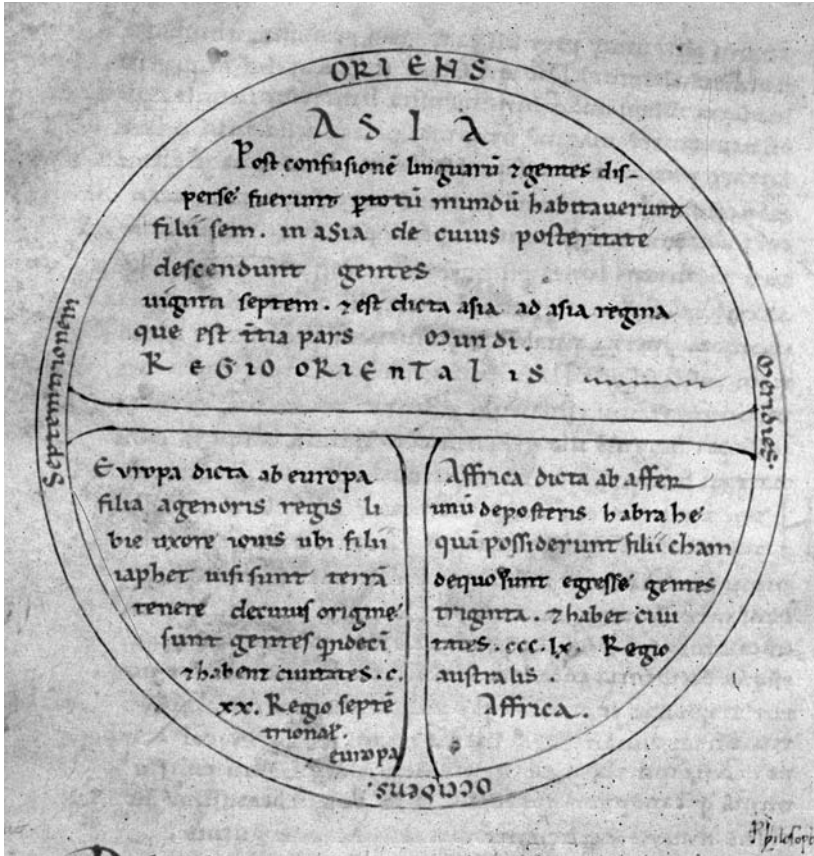 ORIENS
ASIA
Post confusionē linguarū ⁊ gentes dis-
perse fuerunt ꝑ totū mundū habitaverunt
filii sem. in asia de cuius posteritate
descendunt gentes
uiginti septem. ⁊ est dicta asia ab asia regina
que est t̄tia pars mundi.
REGIO ORIENTALIS
Septemtrionem
Meridies.
Europa dicta ab europa
filia agenoris regis li
bie uxore iouis ubi filii
iaphet uisi sunt terrā
tenere de cuius origine
sunt gentes q̇ndeci̅
⁊ habent ciuitates. c.
xx. Regio septē
trional̓.
europa
Affrica dicta ab affer
unū de posteris habrahe
quā possiderunt filii cham
de quo sunt egresse gentes
triginta. ⁊ habet ciui
tates. ccc. lx. Regio
australis.
Affrica.
Occidens.